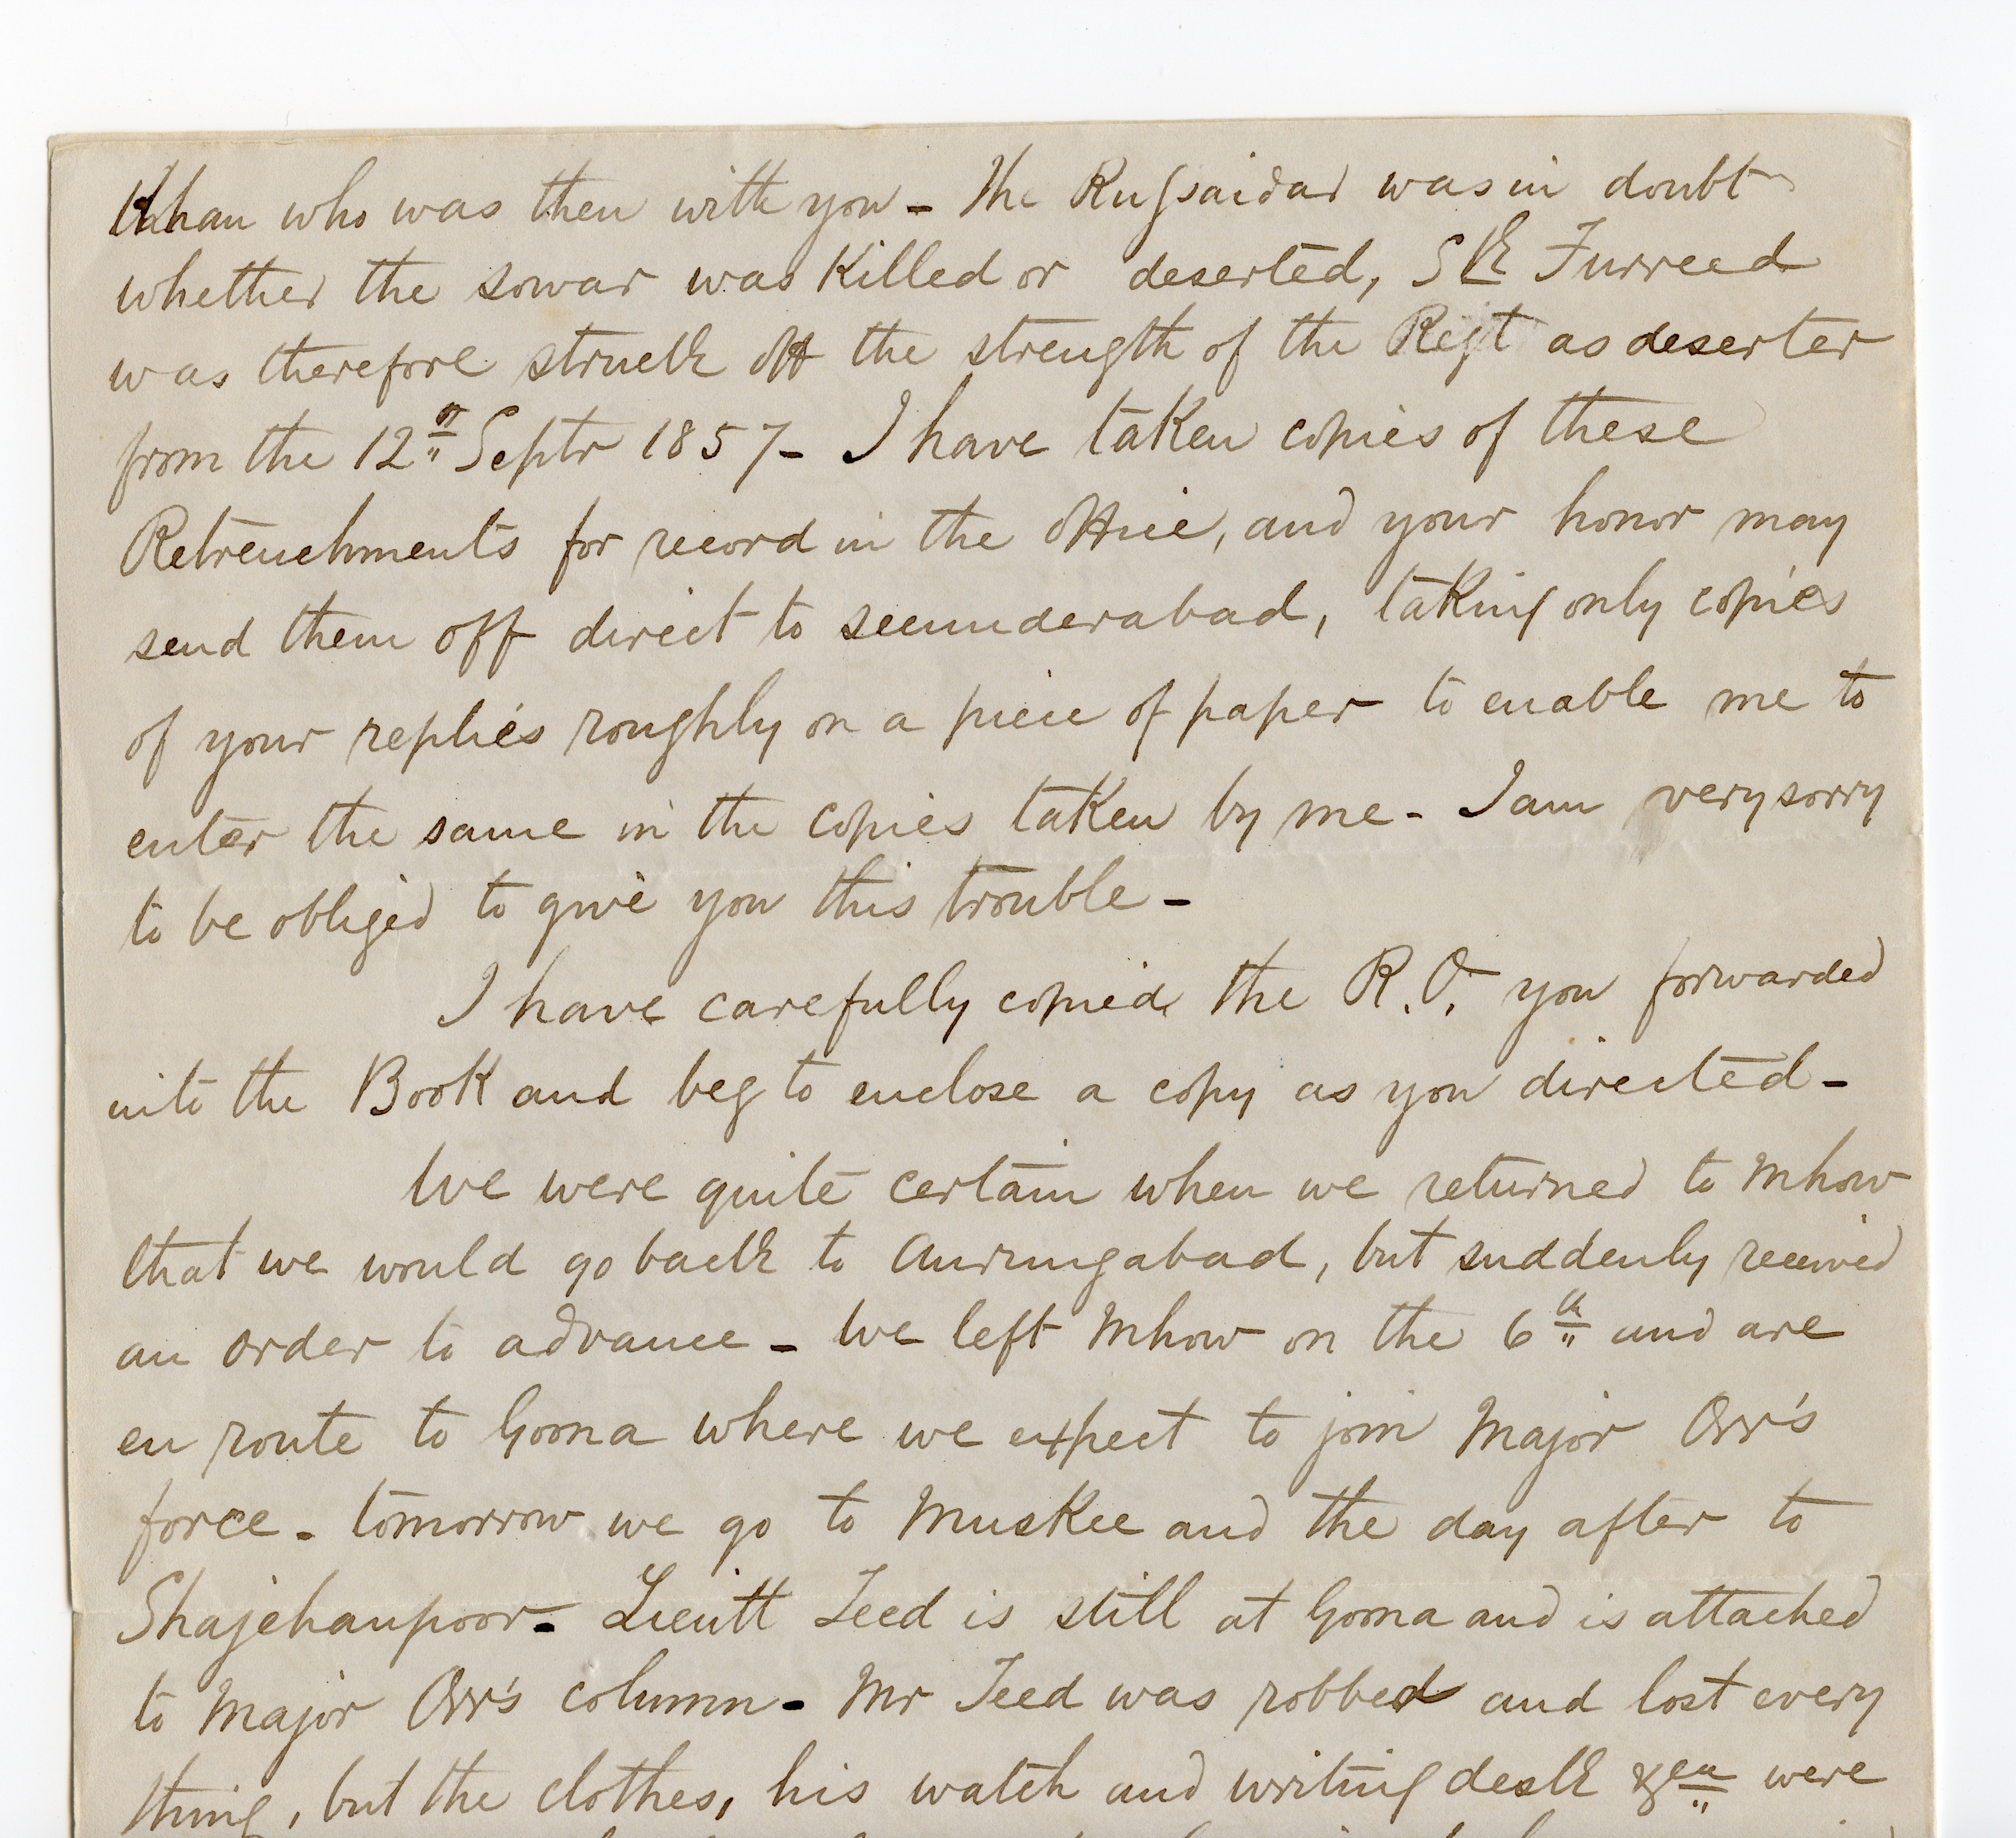 Khan who was then with you - The Russaidar was in doubt
whether the sowar was Killed or deserted, Sk Furreed
was therefore struck off the strength of the Regt as deserter
from the 12th Septr 1857 - I have taken copies of these
Retrenchments for record in the office, and your honor may
send them off direct to secunderabad, taking only copies
of your replies roughly on a piece of paper to enable me to
enter the same in the copies taken by me - I am very sorry
to be obliged to give you this trouble -
I have carefully copied the R.O. you forwarded
into the Book and beg to enclose a copy as you directed -
We were quite certain when we returned to Mhow
that we would go back to Aurungabad, but suddenly received
an order to advance - We left Mhow on the 6th and are
en route to Goona where we expect to join Major Orr's
force - tomorrow we go to Muskee and the day after to
Shajehanpoor - Lieutt Teed is still at Goona and is attached
to Major Orr's column - Mr Teed was robbed and lost every
thing, but the clothes, his watch and writing desk &ca were